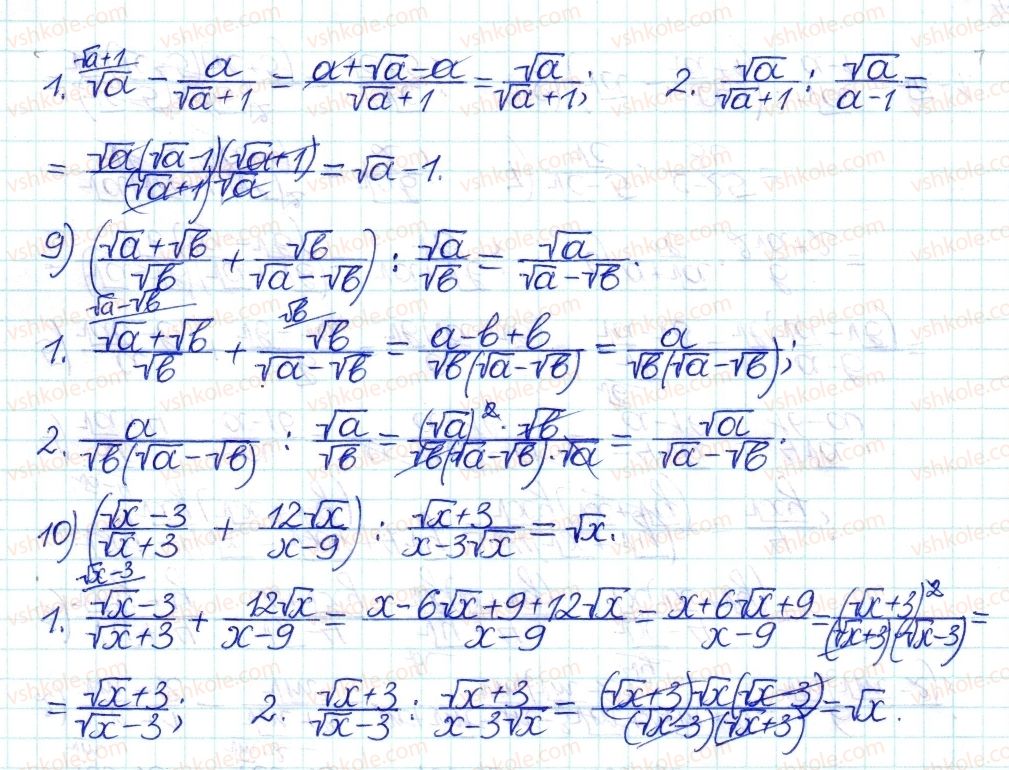 1. √a^{√a+1} − a/(√a+1) = (a+√a−a)/(√a+1) = √a/(√a+1); 2. √a/(√a+1) : √a/(a−1) =
= √a(√a−1)(√a+1)/((√a+1)√a) = √a−1.
9) ((√a+√b)/√b + √b/(√a−√b)) : √a/√b = √a/(√a−√b).
1. (√a+√b)/√b^{√a−√b} + √b/(√a−√b)^{√b} = (a−b+b)/(√b(√a−√b)) = a/(√b(√a−√b));
2. a/(√b(√a−√b)) : √a/√b = (√a)²·√b/(√b(√a−√b)·√a) = √a/(√a−√b).
10) ((√x−3)/(√x+3) + 12√x/(x−9)) : (√x+3)/(x−3√x) = √x.
1. (√x−3)/(√x+3)^{√x−3} + 12√x/(x−9) = (x−6√x+9+12√x)/(x−9) = (x+6√x+9)/(x−9) = (√x+3)²/((√x+3)(√x−3)) =
= (√x+3)/(√x−3); 2. (√x+3)/(√x−3) : (√x+3)/(x−3√x) = (√x+3)√x(√x−3)/((√x−3)(√x+3)) = √x.
vshkole.com